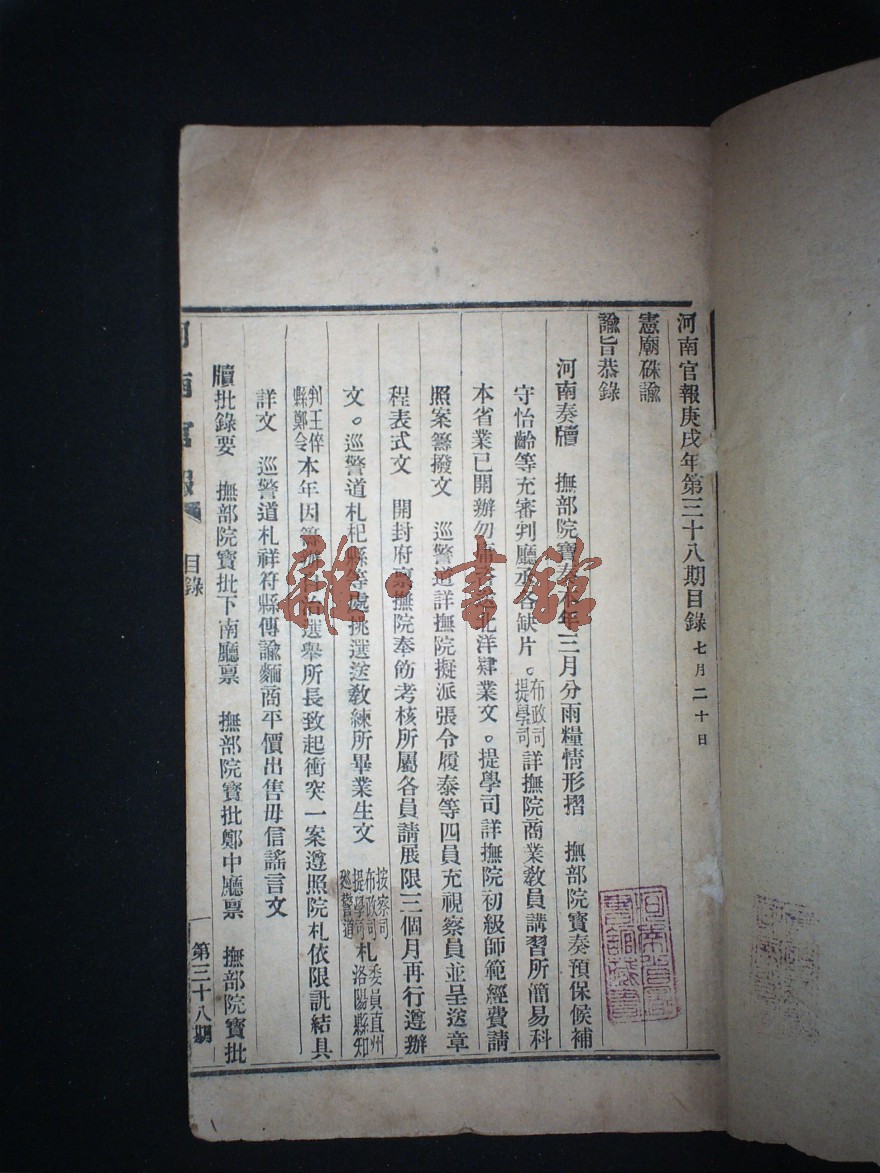 河南官報庚戌年第三十八期目錄 七月二十日
憲廟硃諭
諭旨恭錄
河南奏牘 撫部院寶奏本年三月分雨糧情形摺 撫部院寶奏預保候補
守怡齡等充審判廳丞各缺片。布政司提學司詳撫院商業教員講習所簡易科
本省業已開辦勿北洋肄業文。提學司詳撫院初級師範經費請
照案籌撥文 巡警道詳撫院擬派張令履泰等四員充視察員並呈送章
程表式文 開封府稟撫院奉飭考核所屬各員請展限三個月再行遵辦
文。巡警道札杞縣等處挑選送教練所畢業生文 按察司布政司提學司巡警道札委員直州洛陽縣知
判王倅縣鄭令本年因籌辦自治選舉所長致起衝突一案遵照院札依限訊結具
詳文 巡警道札祥符縣傳諭麵商平價出售毋信謠言文
牘批錄要 撫部院寶批下南廳稟 撫部院寶批鄭中廳稟 撫部院寶批
河南官報 目錄 第三十八期
河南省立圖書館藏書
雜書館